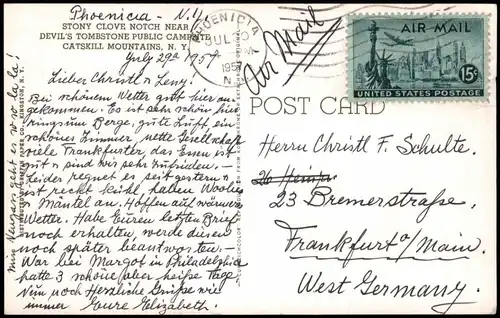 Phoenicia - N.Y.
STONY CLOVE NOTCH NEAR
DEVIL'S TOMBSTONE PUBLIC CAMPSITE
CATSKILL MOUNTAINS, N. Y.
July 29th 1957
Lieber Christl & Leny!
Bei schönem Wetter gut hier an-
gekommen. Es ist sehr schön hier
ringsum Berge, gute Luft ein
schönes Zimmer, nette Gesellschaft
viele Frankfurter, das Essen ist
gut & sind wir sehr zufrieden. -
Leider regnet es seit gestern &
ist recht kühl, haben Woolies
& Mäntel an. Hoffen auf wärmeres
Wetter. Habe Euren letzten Brief
noch erhalten, werde diesen
noch später beantworten. -
War bei Margot in Philadelphia
hatte 3 schöne aber heiße Tage.
Nun noch Herzliche Grüße wie
immer Eure Elizabeth.
geht es so la la!
PHOENICIA
JUL 30
PM
1957
N.Y.
Air Mail
AIR MAIL
15¢
UNITED STATES POSTAGE
POST CARD
Herrn Christl F. Schulte.
26
23 Bremerstraße,
Frankfurt a/Main.
West Germany.